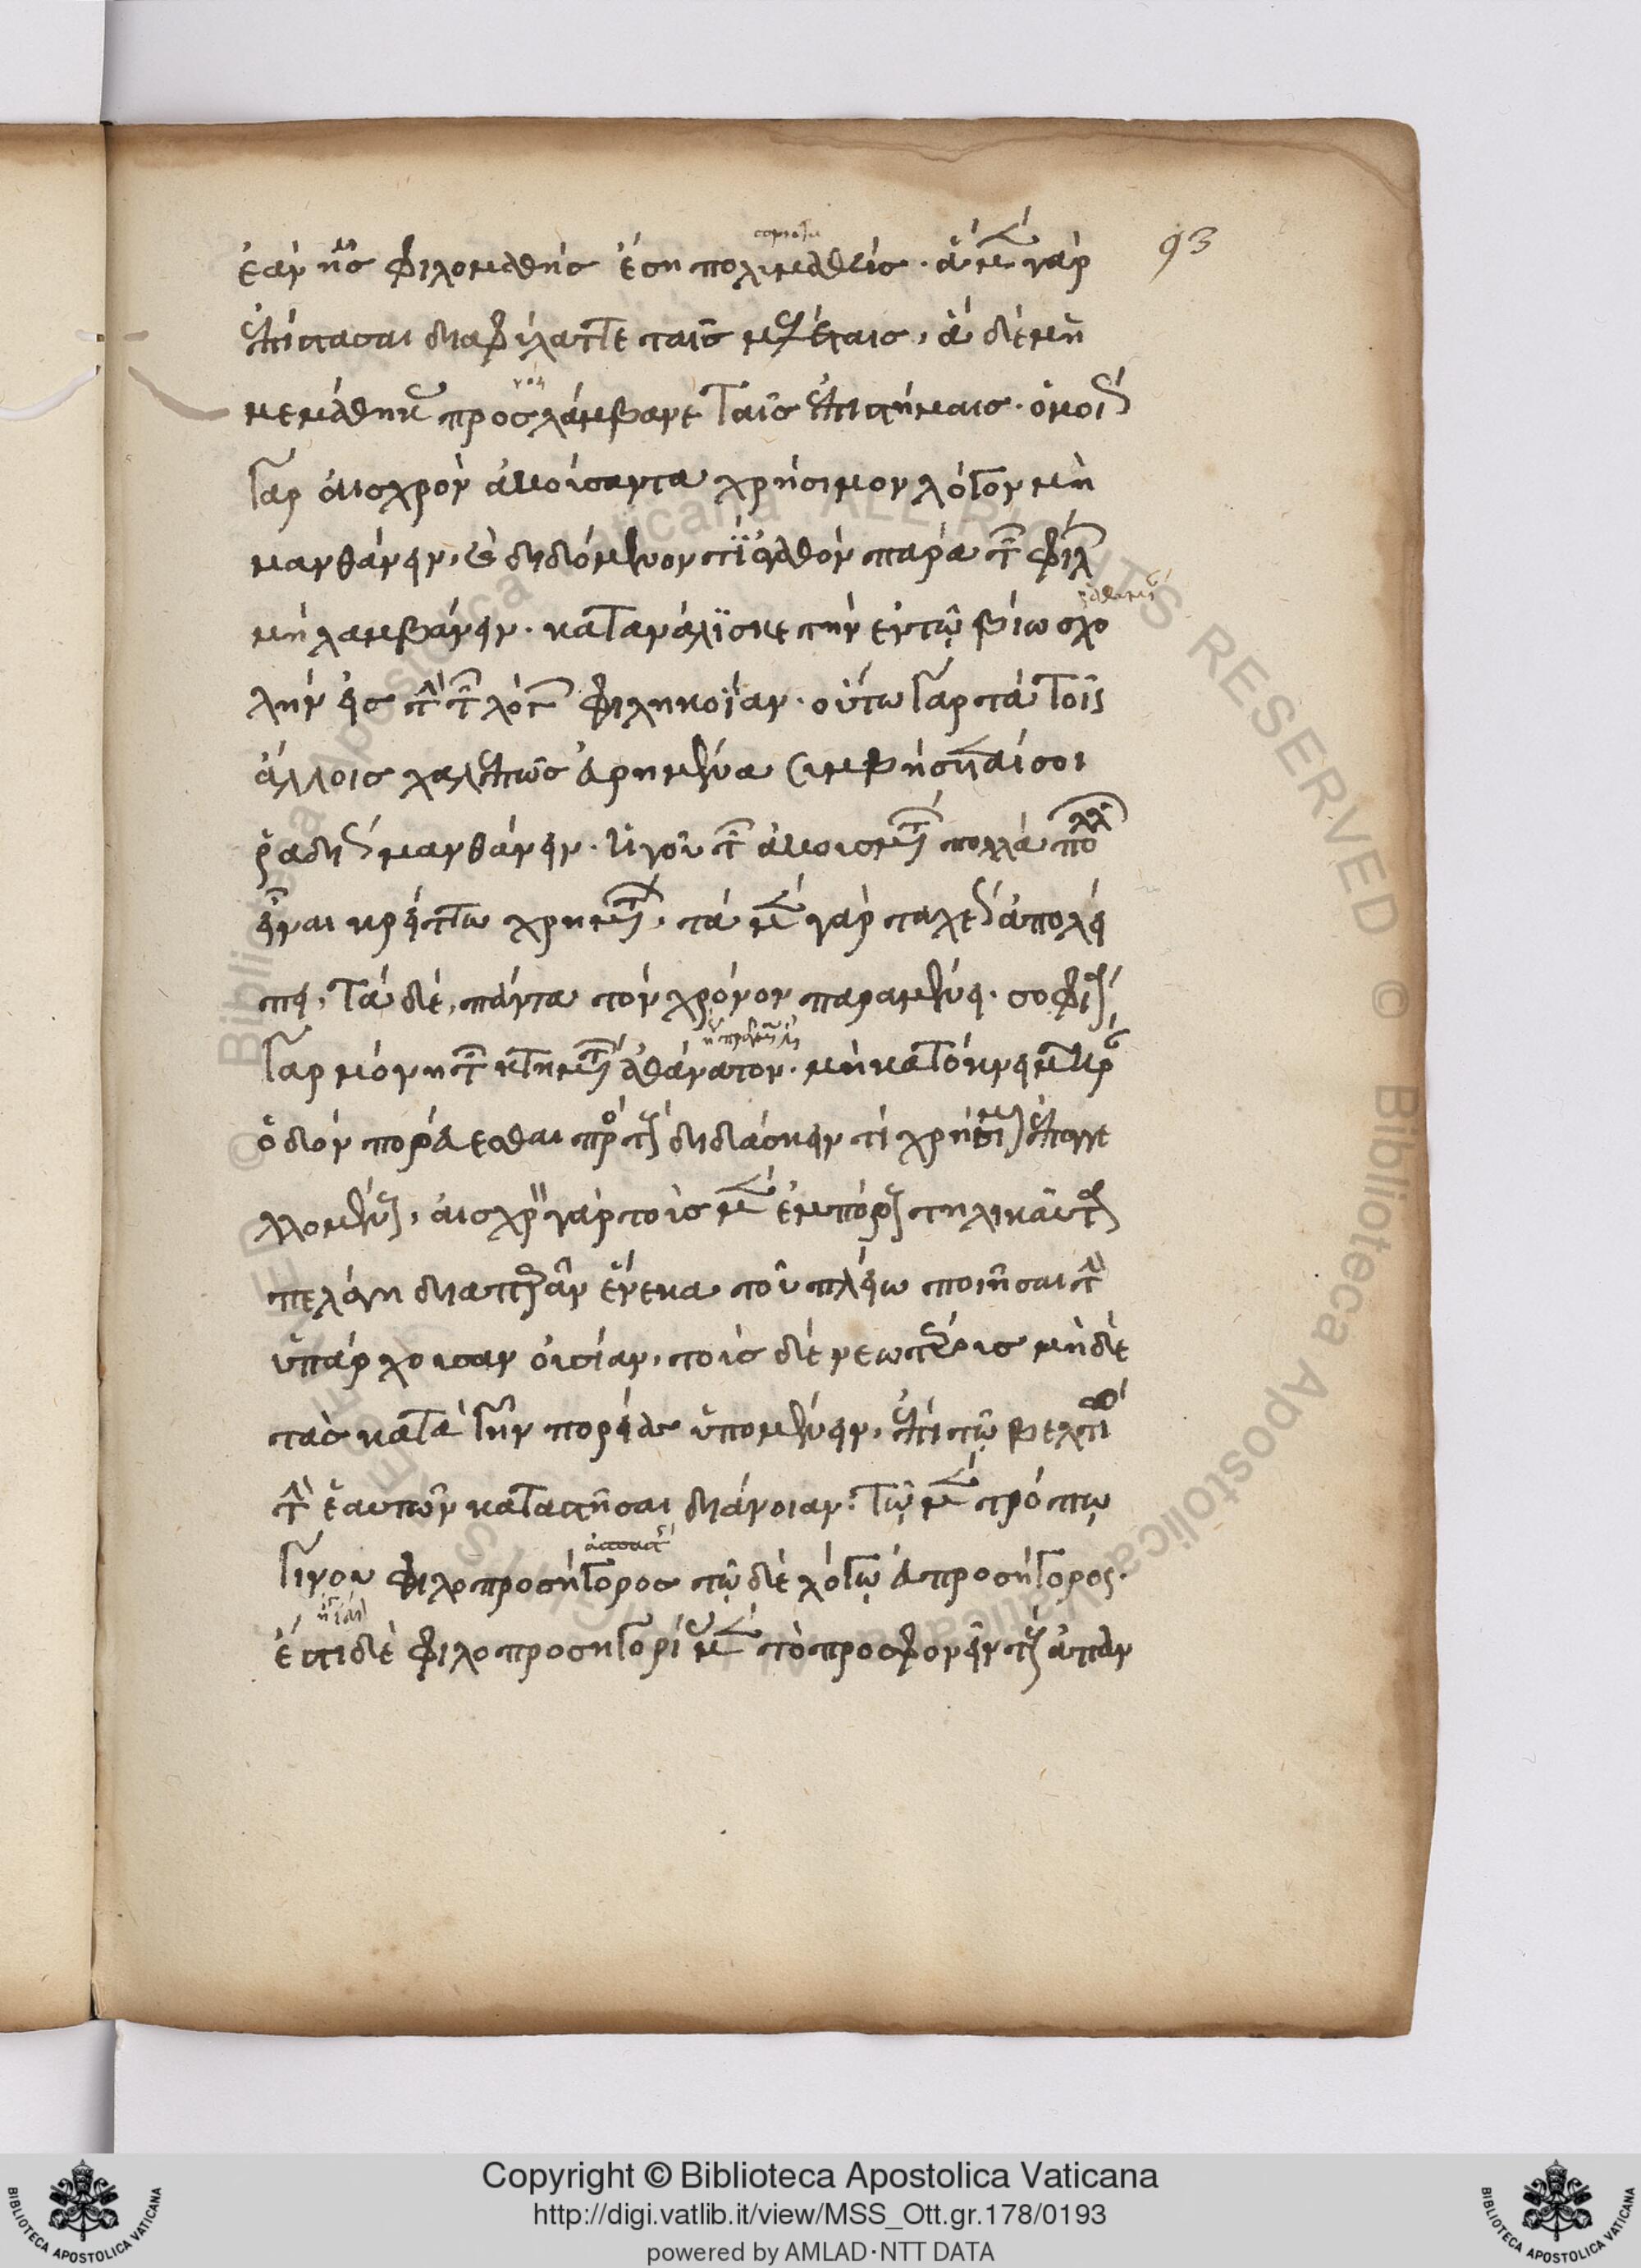 93
ἐὰν ἦς φιλομαθής ἔση πολυμαθής. ἃ μὲν γὰρ
ἐπίστασαι διαφύλαττε ταῖς μελέταις, ἃ δὲ μὴ
μεμάθηκας προσλάμβανε ταῖς ἐπιστήμαις. ὁμοίως
γὰρ αἰσχρὸν ἀκούσαντα χρήσιμον λόγον μὴ
μανθάνειν, καὶ διδόμενόν τι ἀγαθὸν παρὰ τῶν φίλων
μὴ λαμβάνειν. κατανάλισκε τὴν ἐν τῷ βίῳ σχο
λὴν εἰς τὴν τῶν λόγων φιληκοΐαν. οὕτω γὰρ τὰ τοῖς
ἄλλοις χαλεπῶς εὑρημένα συμβήσεταί σοι
ῥαδίως μανθάνειν. ἡγοῦ τῶν ἀκουσμάτων πολλὰ πολλῶν
εἶναι κρείττω χρημάτων, τὰ μὲν γὰρ ταχέως ἀπολεί
πει, τὰ δὲ, πάντα τὸν χρόνον παραμένει. σοφία
γὰρ μόνη τῶν κτημάτων ἀθάνατον. μὴ κατόκνει μακρὰν
ὁδὸν πορεύεσθαι πρὸς τοὺς διδάσκειν τί χρήσιμον ἐπαγγε
λλομένους, αἰσχρὸν γὰρ τοὺς μὲν ἐμπόρους τηλικαῦτα
πελάγη διαπερᾶν ἕνεκα τοῦ πλείω ποιῆσαι τὴν
ὑπάρχουσαν οὐσίαν, τοὺς δὲ νεωτέρους μηδὲ
τὰς κατὰ γῆν πορείας ὑπομένειν, ἐπὶ τῷ βελτίω
τὴν ἑαυτῶν καταστῆσαι διάνοιαν. τῷ μὲν τρόπῳ
γίνου φιλοπροσήγορος τῷ δὲ λόγῳ εὐπροσήγορος.
ἔστι δὲ φιλοπροσηγορίας μὲν τὸ προσφωνεῖν τοὺς ἀπαν
Copyright © Biblioteca Apostolica Vaticana
http://digi.vatlib.it/view/MSS_Ott.gr.178/0193
powered by AMLAD·NTT DATA
BIBLIOTECA APOSTOLICA VATICANA
BIBLIOTECA APOSTOLICA VATICANA